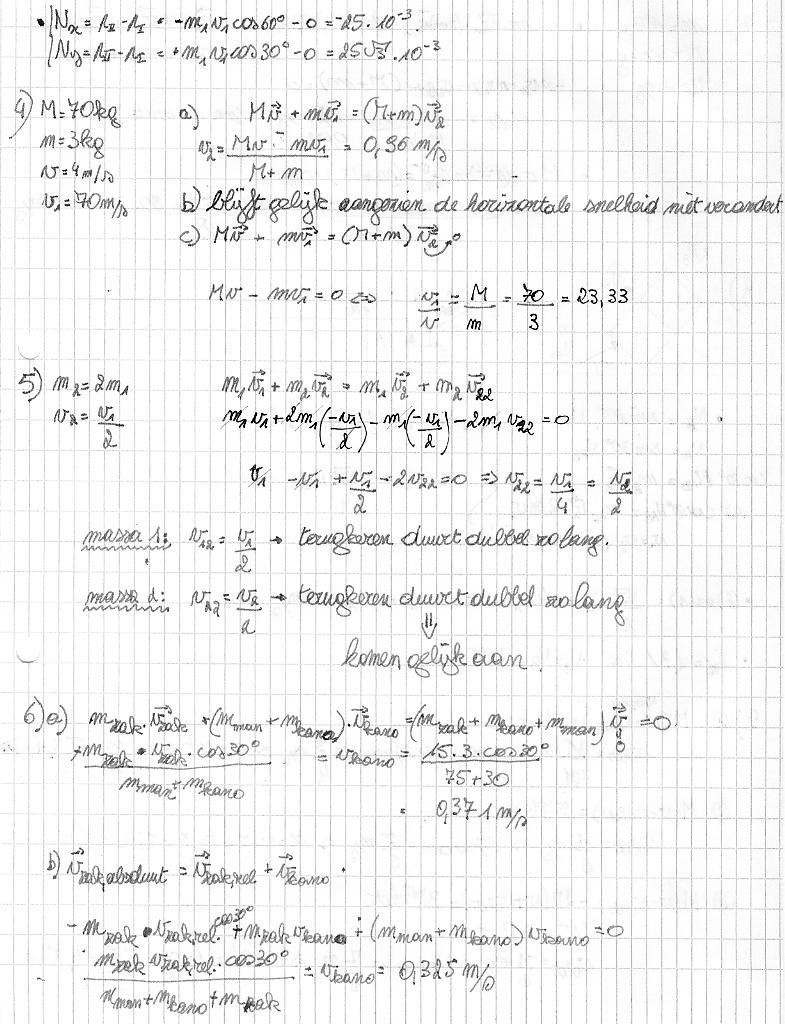 • { Nx = pII - pI = -m₁v₁cos60° - 0 = -25·10⁻³
{ Ny = pII - pI = +m₁v₁cos30° - 0 = 25√3·10⁻³
4) M = 70kg a) Mv⃗ + mv⃗₁ = (M+m)v⃗₂
m = 3kg v₂ = (Mv - mv₁)/(M+m) = 0,96 m/s
v = 4m/s
v₁ = 70m/s b) blijft gelijk aangezien de horizontale snelheid niet verandert
c) Mv⃗ + mv⃗₁ = (M+m)v⃗₂ → 0
Mv - mv₁ = 0 ⇔ v₁/v = M/m = 70/3 = 23,33
5) m₂ = 2m₁ m₁v⃗₁ + m₂v⃗₂ = m₁v⃗₂ + m₂v⃗₂₂
v₂ = v₁/2 m₁v₁ + 2m₁(-v₁/2) - m₁(-v₁/2) - 2m₁v₂₂ = 0
v₁ - v₁ + v₁/2 - 2v₂₂ = 0 ⇒ v₂₂ = v₁/4 = v₂/2
massa 1: v₁₂ = v₁/2 → terugkeren duurt dubbel zo lang.
massa 2: v₂₂ = v₂/2 → terugkeren duurt dubbel zo lang
⇓
komen gelijk aan.
6) a) mzak·v⃗zak + (mman + mkano)·v⃗kano = (mzak + mkano + mman)v⃗ = 0
+mzak·vzak·cos30°/(mman + mkano) = vkano = 15·3·cos30°/(75+30)
= 0,371 m/s
b) v⃗zak,absoluut = v⃗zak,rel + v⃗kano.
- mzak·vzak,rel·cos30° + mzak vkano + (mman + mkano) vkano = 0
mzak vzak,rel·cos30°/(mman + mkano + mzak) = vkano = 0,325 m/s